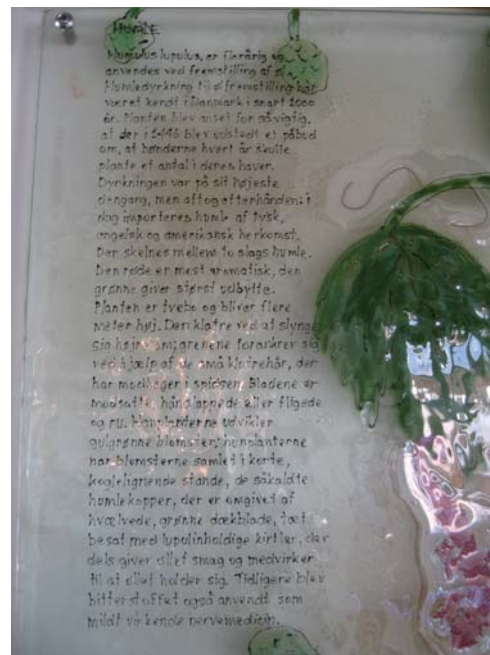 HUMLE
Humulus lupulus, er flerårig og
anvendes ved fremstilling af øl
Humledyrkning til ølfremstilling har
været kendt i Danmark i snart 1000
år. Planten blev anset for så vigtig,
at der i 1446 blev udstedt et påbud
om, at bønderne hvert år skulle
plante et antal i deres haver.
Dyrkningen var på sit højeste
dengang, men aftog efterhånden: i
dag importeres humle af tysk,
engelsk og amerikansk herkomst.
Der skelnes mellem to slags humle.
Den røde er mest aromatisk, den
grønne giver størst udbytte.
Planten er tvebo og bliver flere
meter høj. Den klatre ved at slynge
sig højre om; grenene forankrer sig
ved hjælp af de små klatrehår, der
har modhager i spidsen. Bladene er
modsatte, håndlappede eller fligede
og ru. Hanplanterne udvikler
gulgrønne blomster; hunplanterne
har blomsterne samlet i korte,
koglelignende stande, de såkaldte
humlekopper, der er omgivet af
hvælvede, grønne dækblade, tæt
besat med lupulinholdige kirtler, der
dels giver øllet smag og medvirker
til at øllet holder sig. Tidligere blev
bitterstoffet også anvendt som
mildt virkende nervemedicin.